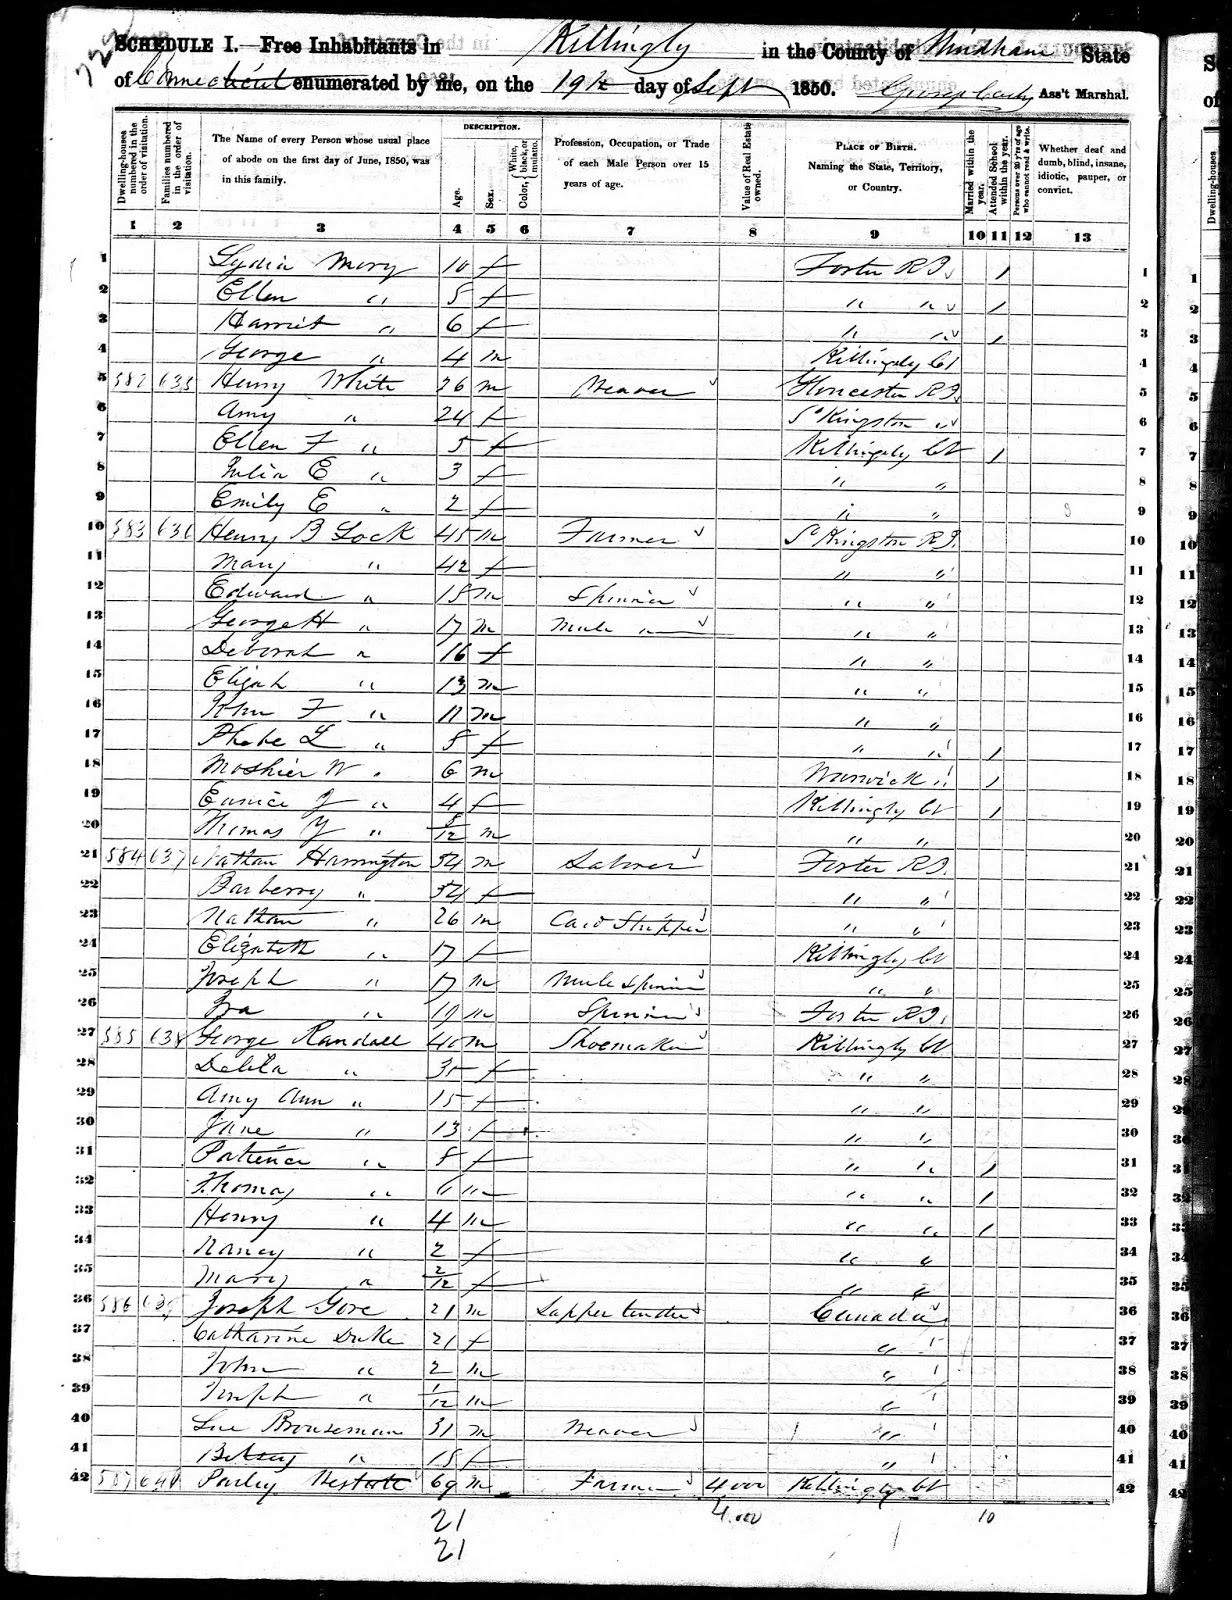 SCHEDULE I.—Free Inhabitants in Killingly in the County of Windham State
of Connecticut enumerated by me, on the 19th day of Sept 1850. Ass't Marshal.
Dwelling-houses numbered in the order of visitation.
Families numbered in the order of visitation.
The Name of every Person whose usual place of abode on the first day of June, 1850, was in this family.
DESCRIPTION.
Age.
Sex.
Color, { White, black, or mulatto.
Profession, Occupation, or Trade of each Male Person over 15 years of age.
Value of Real Estate owned.
PLACE OF BIRTH. Naming the State, Territory, or Country.
Married within the year.
Attended School within the year.
Persons over 20 y'rs of age who cannot read & write.
Whether deaf and dumb, blind, insane, idiotic, pauper, or convict.
1 2 3 4 5 6 7 8 9 10 11 12 13
1 Lydia Mory 10 f Foster R I. 1 1
2 Ellen " 5 f " " 1 2
3 Harriet " 6 f " " 1 3
4 George " 4 m Killingly Ct 4
5 582 635 Henry White 26 m Weaver Gloucester R I. 5
6 Amy " 24 f So Kingston " 6
7 Ellen F " 5 f Killingly Ct 1 7
8 Julia E " 3 f " " 8
9 Emily E " 2 f " " 9
10 583 636 Henry B Lock 45 m Farmer So Kingston R I. 10
11 Mary " 42 f " " 11
12 Edward " 18 m Spinner " " 12
13 George H " 17 m Mule " " " 13
14 Deborah " 16 f " " 14
15 Elijah " 13 m " " 15
16 John F " 11 m " " 16
17 Phebe L " 8 f " " 1 17
18 Moshier W " 6 m Warwick " 1 18
19 Eunice Y " 4 f Killingly Ct 1 19
20 Thomas Y " 8/12 m " " 20
21 584 637 Nathan Harrington 54 m Laborer Foster R I. 21
22 Barberry " 54 f " " 22
23 Nathan " 26 m Card Stripper " " 23
24 Elizabeth " 17 f Killingly Ct 24
25 Joseph " 17 m Mule Spinner " " 25
26 Ira " 19 m Spinner Foster R I. 26
27 585 638 George Randall 40 m Shoemaker Killingly Ct 27
28 Delila " 35 f " " 28
29 Amy Ann " 15 f " " 29
30 Jane " 13 f " " 30
31 Patience " 8 f " " 1 31
32 Thomas " 6 m " " 1 32
33 Henry " 4 m " " 1 33
34 Nancy " 2 f " " 34
35 Mary " 2/12 f " " 35
36 586 639 Joseph Gore 21 m Lapper tender Canada 36
37 Catharine Duke 21 f " 37
38 John " 2 m " 38
39 Joseph " 1/12 m " 39
40 Bronseman 31 m Weaver " 40
41 Betsey " 18 f " 41
42 587 640 Parley 69 m Farmer 4000 Killingly Ct 42
21 4.000 10
21